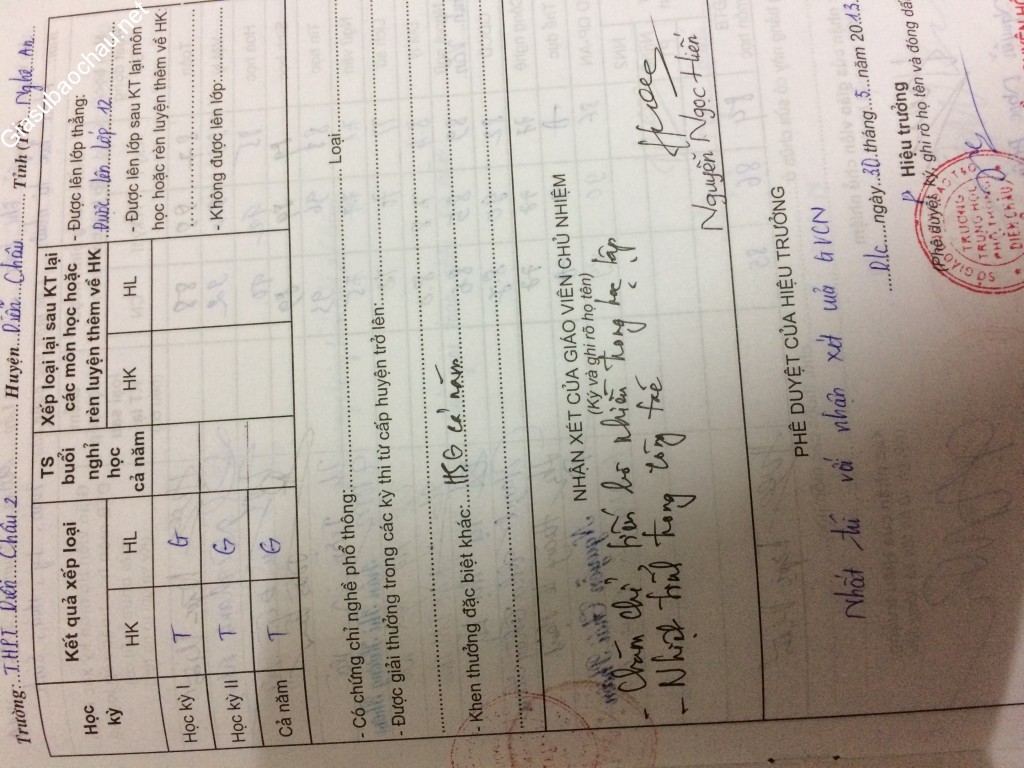 Giasubaochau.net
Trường: T.H.P.T Diễn Châu 2 Huyện Diễn Châu Tỉnh (TP) Nghệ An
Học kỳ
Kết quả xếp loại
TS buổi nghỉ học cả năm
Xếp loại lại sau KT lại các môn học hoặc rèn luyện thêm về HK
HK HL HK HL
Học kỳ I T G
Học kỳ II T G
Cả năm T G
- Được lên lớp thẳng:
Được lên lớp 12
- Được lên lớp sau KT lại môn học hoặc rèn luyện thêm về HK:
- Không được lên lớp:
- Có chứng chỉ nghề phổ thông: Loại
- Được giải thưởng trong các kỳ thi từ cấp huyện trở lên:
- Khen thưởng đặc biệt khác: HSG cả năm
NHẬN XÉT CỦA GIÁO VIÊN CHỦ NHIỆM
(Ký và ghi rõ họ tên)
- Chăm chỉ, nhiều trong học tập
- Nhiệt tình trong công tác
Nguyễn Ngọc Hiến
PHÊ DUYỆT CỦA HIỆU TRƯỞNG
Nhất trí với nhận xét của GVCN
D.C ngày 30 tháng 5 năm 2013
Hiệu trưởng
(Phê duyệt, ký, ghi rõ họ tên và đóng dấu)
TRƯỜNG
TRUNG HỌC
PHỔ THÔNG
DIỄN CHÂU